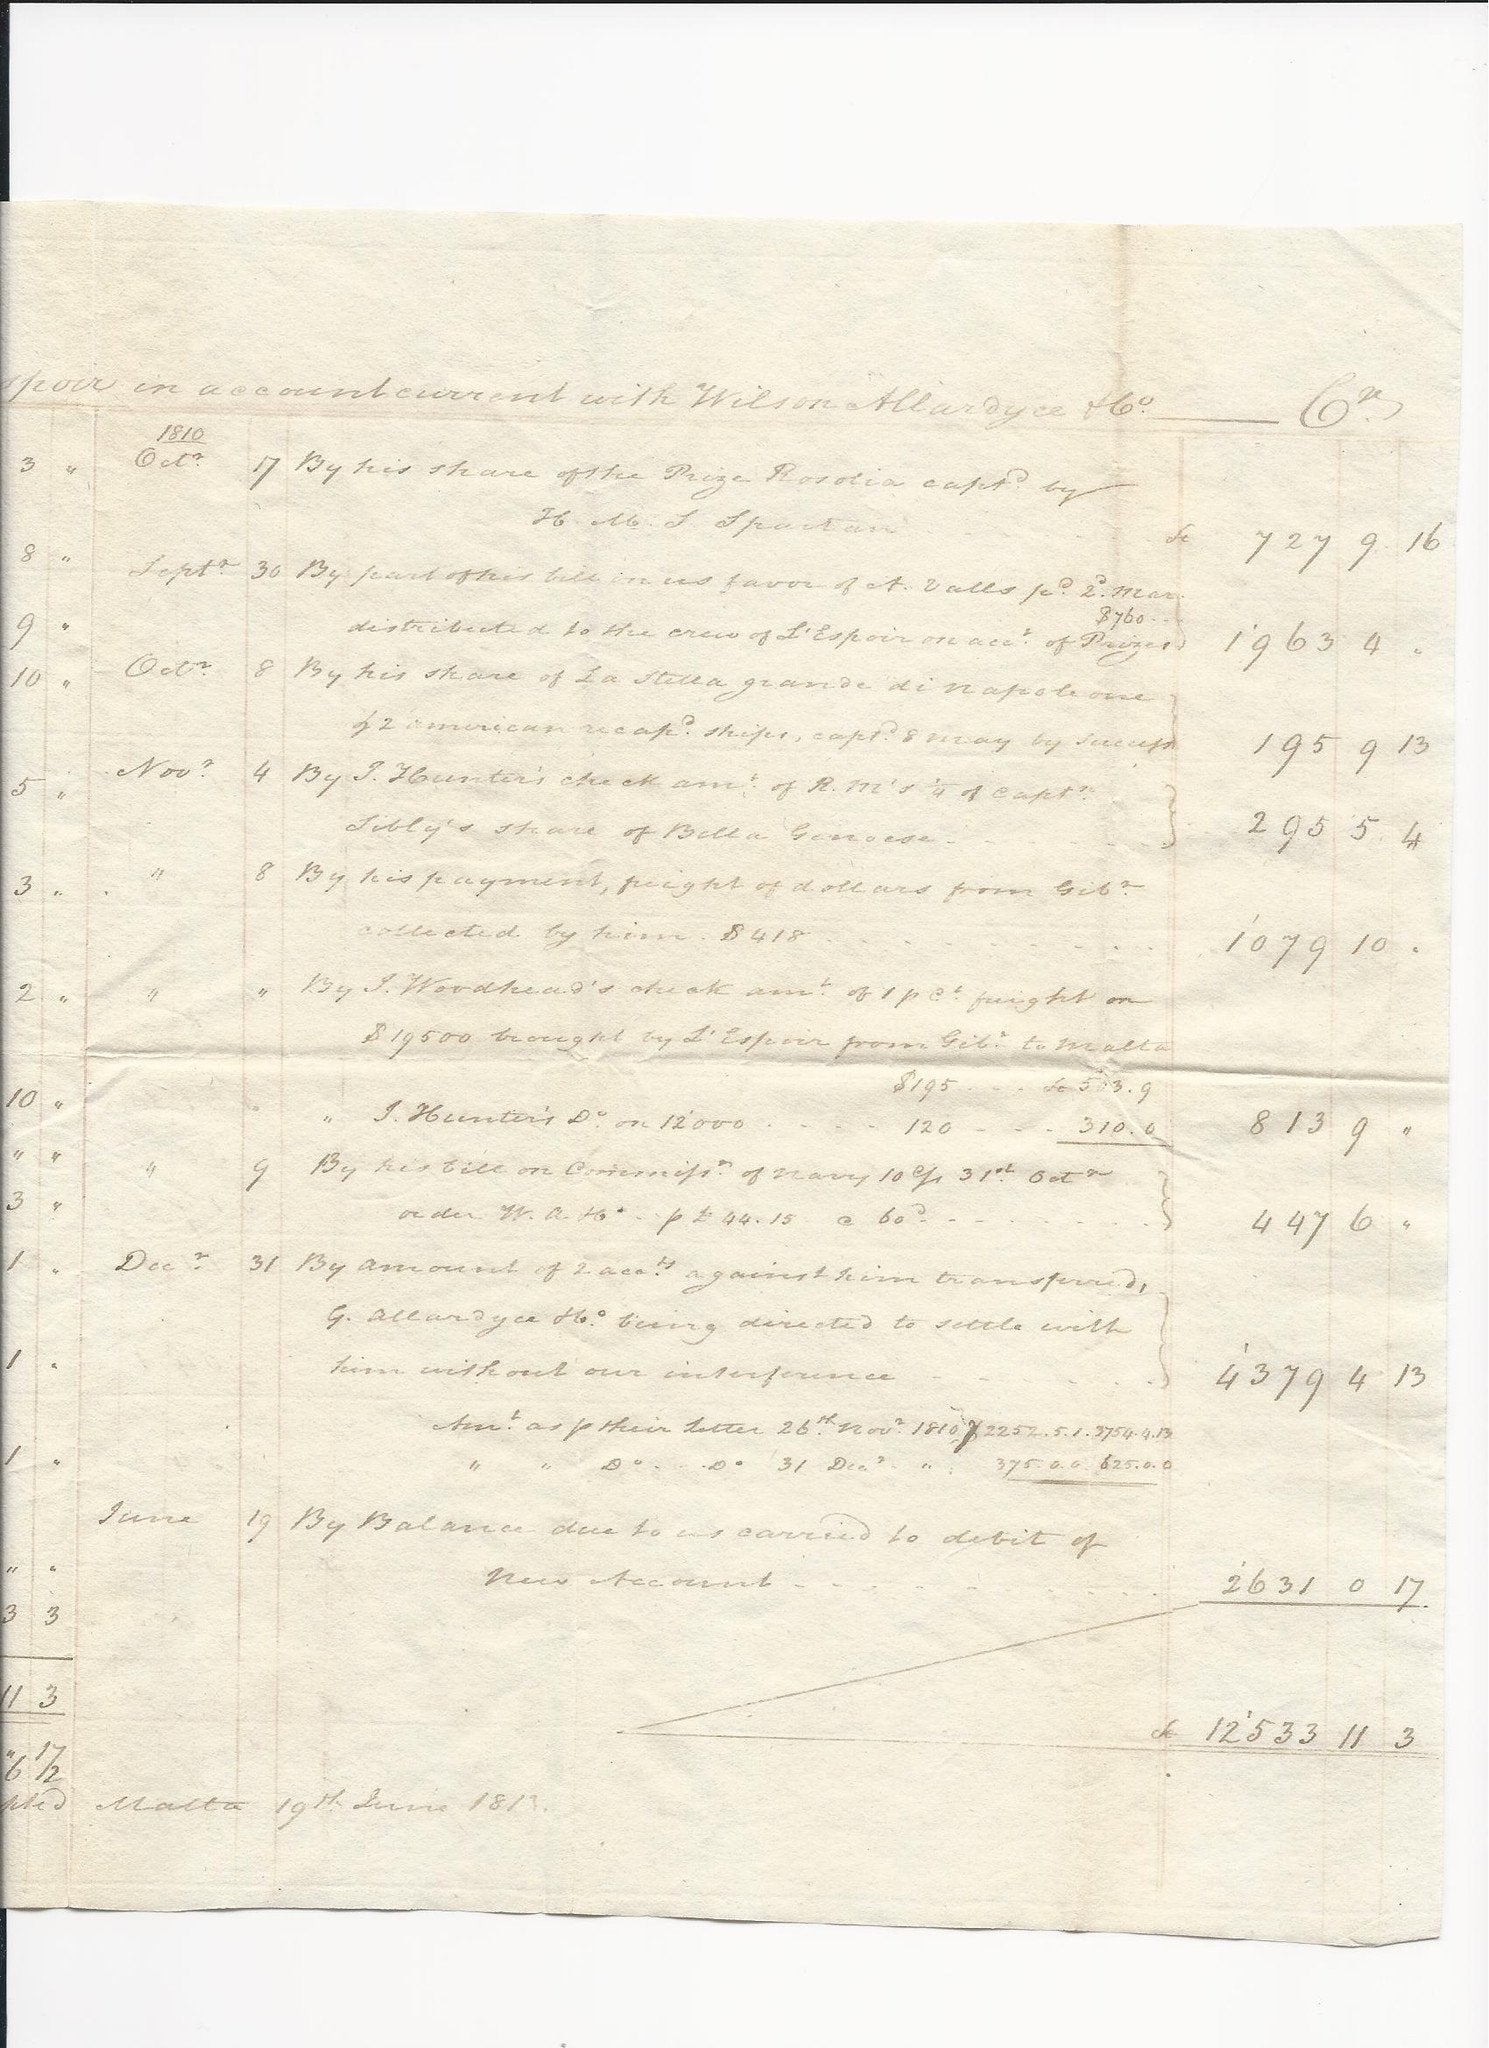 spoir in account current with Wilson Allardyce & Co. Cr.
1810
3 " Octr. 17 By his share of the Prize Rosolia captd. by
H. M. S. Spartan Sc 727 9 16
8 " Septr. 30 By part of his bill in us favor of A. Valls pd. 2d. Mar.
$760
9 " distributed to the crew of L'Espoir on acct. of Prizes 1963 4 .
10 " Octr. 8 By his share of La Stella grande di Napoleone
& 2 american recapd. ships, captd. 8 May by Success 195 9 13
5 " Novr. 4 By J. Hunter's check amt. of R. M's ¼ of Captn.
Sibly's share of Bella Genoese 295 5 4
3 " " 8 By his payment, freight of dollars from Gibr.
collected by him $418 1079 10 .
2 " " " By J. Woodhead's check amt. of 1 p Ct. freight on
$19500 brought by L'Espoir from Gibr. to Malta
$195 Sc 513.9
10 " " J. Hunter's Do on 12'000 120 310.0 813 9 "
" " " 9 By his bill on Commissr. of Navy 31st Octr.
3 " order W. A. & Co. p £44.15 @ 60d. 447 6 "
1 " Decr. 31 By amount of 2 accts. against him transferred,
G. Allardyce & Co. being directed to settle with
1 " him without our interference 4'379 4 13
Amt. as p their letter 26th. Novr. 1810 2252.5.1 3754.4.13
1 " " " Do Do 31 Decr. " 375.0.0 625.0.0
June 19 By Balance due to us carried to debit of
" " New Account 2'631 0 17
3 3
11 3
Sc 12'533 11 3
"6 17/2
pted Malta 19th June 181